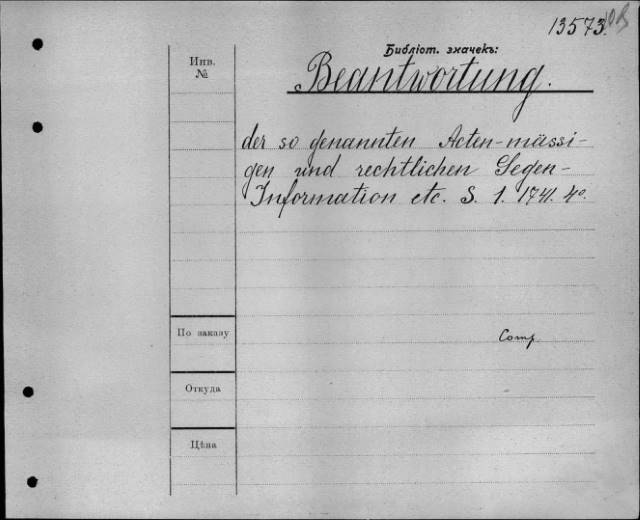 13573.
Библіот. значекъ:
Инв.
№
Beantwortung.
der so genannten Acten-mässi-
gen und rechtlichen Gegen-
Information etc. S. 1. 1741. 4º.
По заказу
Comp.
Откуда
Цѣна